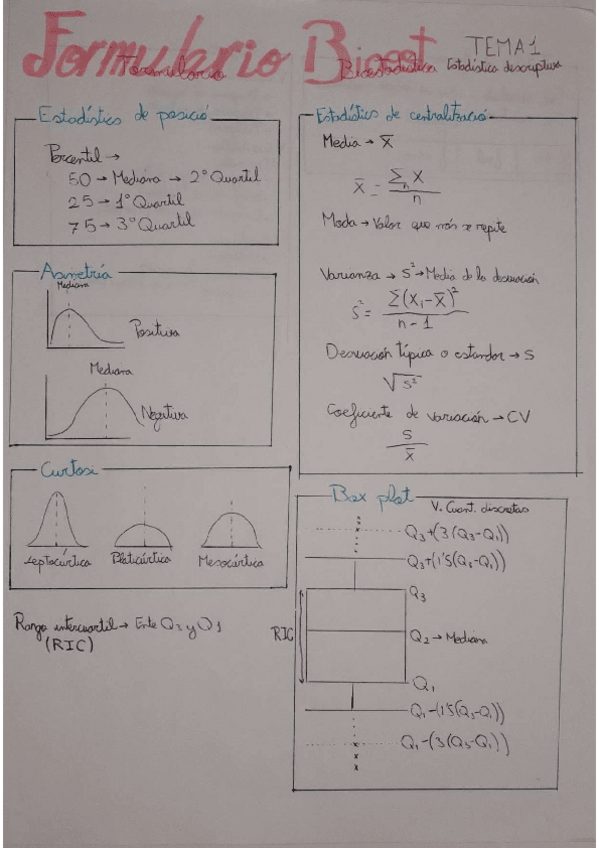 Formulario Bioest
TEMA 1
Formulario
Bioestadística Estadística descriptiva
Estadístics de posició
Percentil →
50 → Mediana → 2º Quartil
25 → 1º Quartil
75 → 3º Quartil
Asimetría
Mediana
Positiva
Mediana
Negativa
Curtosi
Leptocúrtica
Platicúrtica
Mesocúrtica
Rango intercuartil → Ente Q3 y Q1
(RIC)
Estadístics de centralització
Media → x̄
x̄ = Σn X / n
Moda → Valor que más se repite
Varianza → S² → Media de la desviación
S² = Σ(Xi - x̄)² / n - 1
Desviación típica o estandar → S
√S²
Coeficiente de variación → CV
S / x̄
Box plot
V. Cuant. discretas
Q3+(3(Q3-Q1))
Q3+(1'5(Q3-Q1))
Q3
RIC
Q2 → Mediana
Q1
Q1-(1'5(Q3-Q1))
Q1-(3(Q3-Q1))